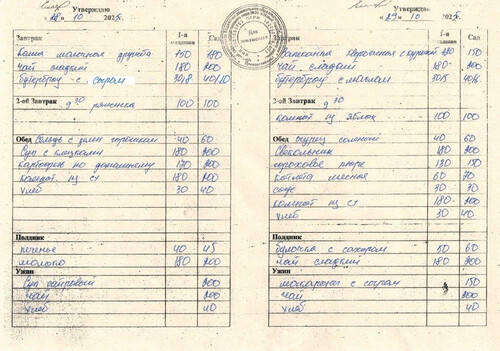 Утверждаю
«28» 10 2025г
Завтрак 1-я Сад
Каша молочная дружба 150 180
Чай сладкий 180 200
Бутерброд с сыром 30/8 40/10
2-ой Завтрак 9 30 ряженка 100 100
Обед Сельдь с зелен горошком 40 60
Суп с клецками 180 200
Картофель по домашнему 170 200
Компот из с/ф 180 200
Хлеб 30 40
Полдник
печенье 40 45
молоко 180 200
Ужин
Суп 200
Чай 200
Хлеб 40
Утверждаю
«29» 10 2025г
Завтрак 1-я Сад
Запеканка с курагой 150
Чай сладкий 180 200
Бутерброд с маслом 30/5
2-ой Завтрак 9 30
компот из яблок 100 100
Обед огурец соленый 40 60
Свекольник 180 200
гороховое пюре 130 150
котлета мясная 60 70
соус 30 30
компот из с/ф 180 200
Хлеб 30 40
Полдник
булочка с сахаром 50 60
чай сладкий 180 200
Ужин
макароны с сыром 150
чай 200
хлеб 40